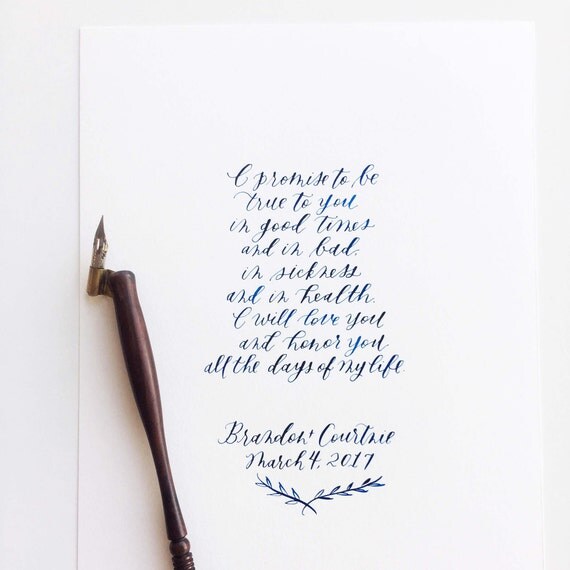 I promise to be
true to you
in good times
and in bad.
in sickness
and in health.
I will love you
and honor you
all the days of my life
Brandon + Courtnie
March 4, 2017